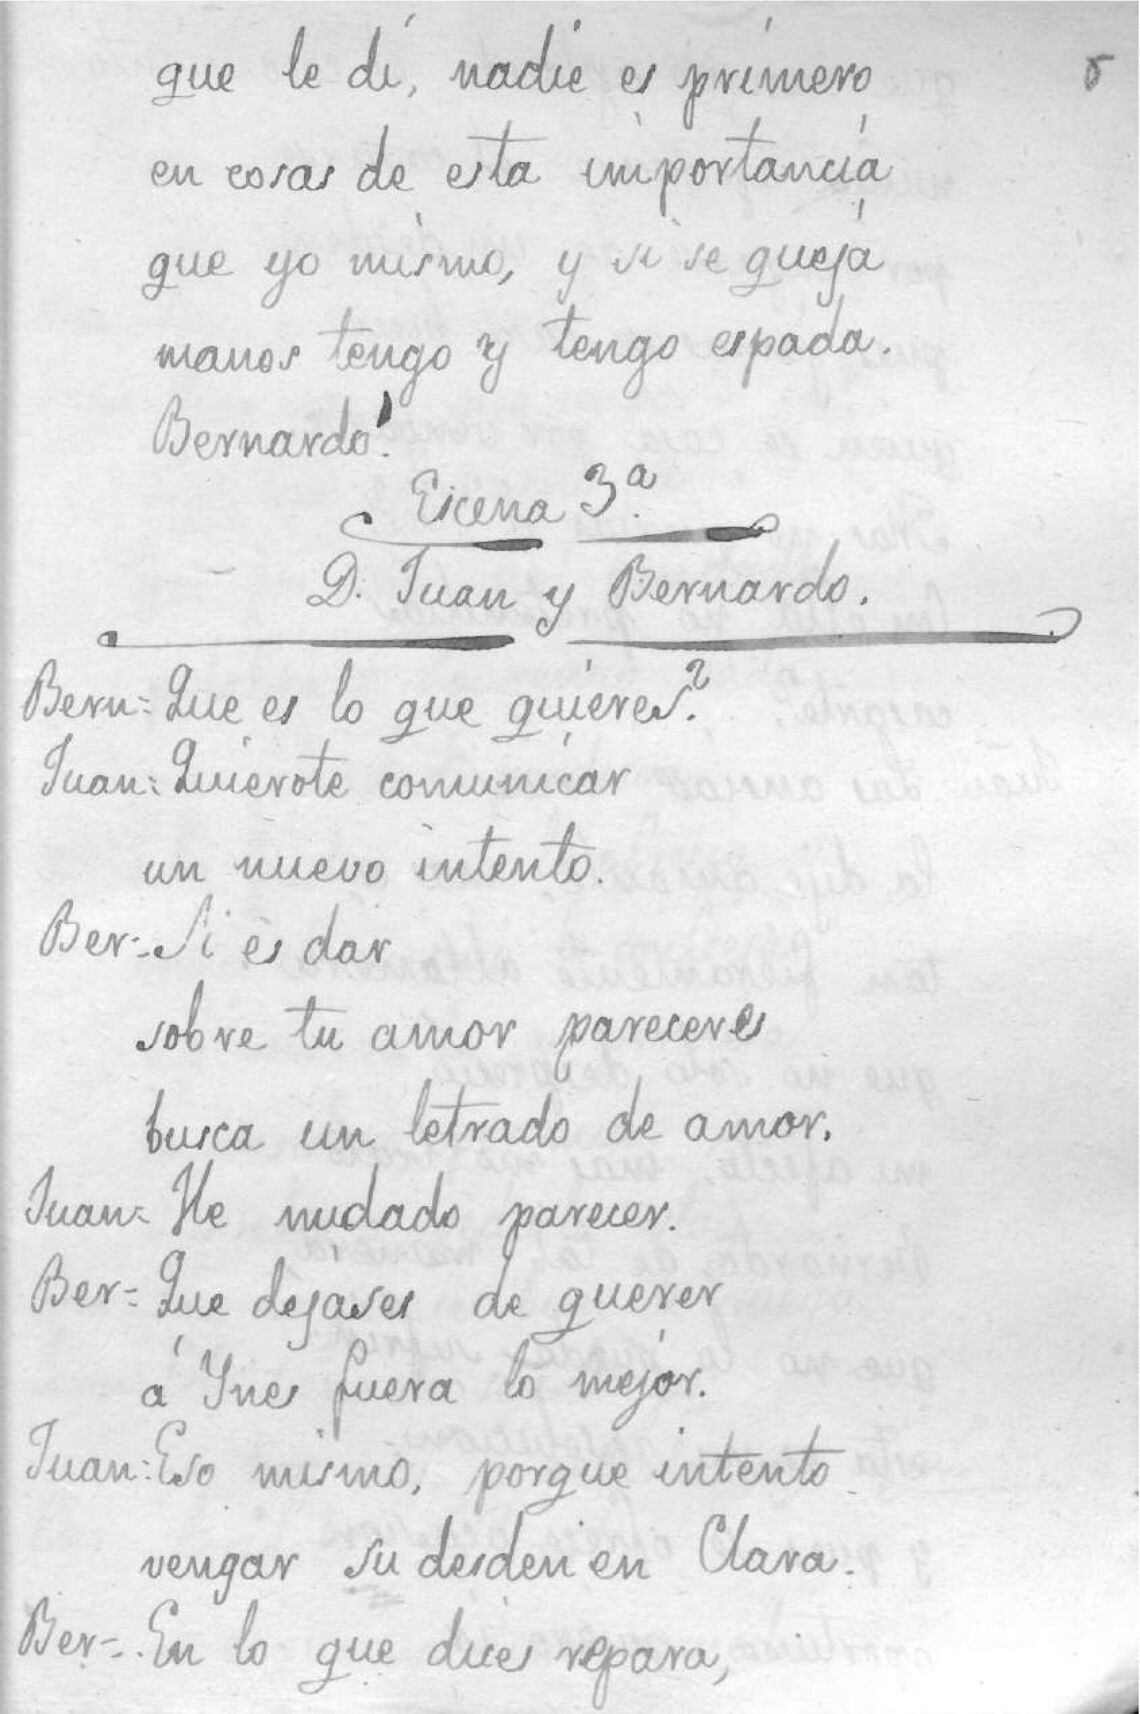 que le dí, nadie es primero
en cosas de esta importancia
que yo mismo, y si se queja
manos tengo y tengo espada.
Bernardo!
Escena 3ª.
D. Juan y Bernardo.
Bern= Que es lo que quieres?
Juan= Quierote comunicar
un nuevo intento.
Ber=. Si es dar
sobre tu amor pareceres
busca un letrado de amor.
Juan= He mudado parecer.
Ber= Que dejases de querer
á Ynes fuera lo mejor.
Juan= Eso mismo, porque intento
vengar su desden en Clara.
Ber=. En lo que dices repara,